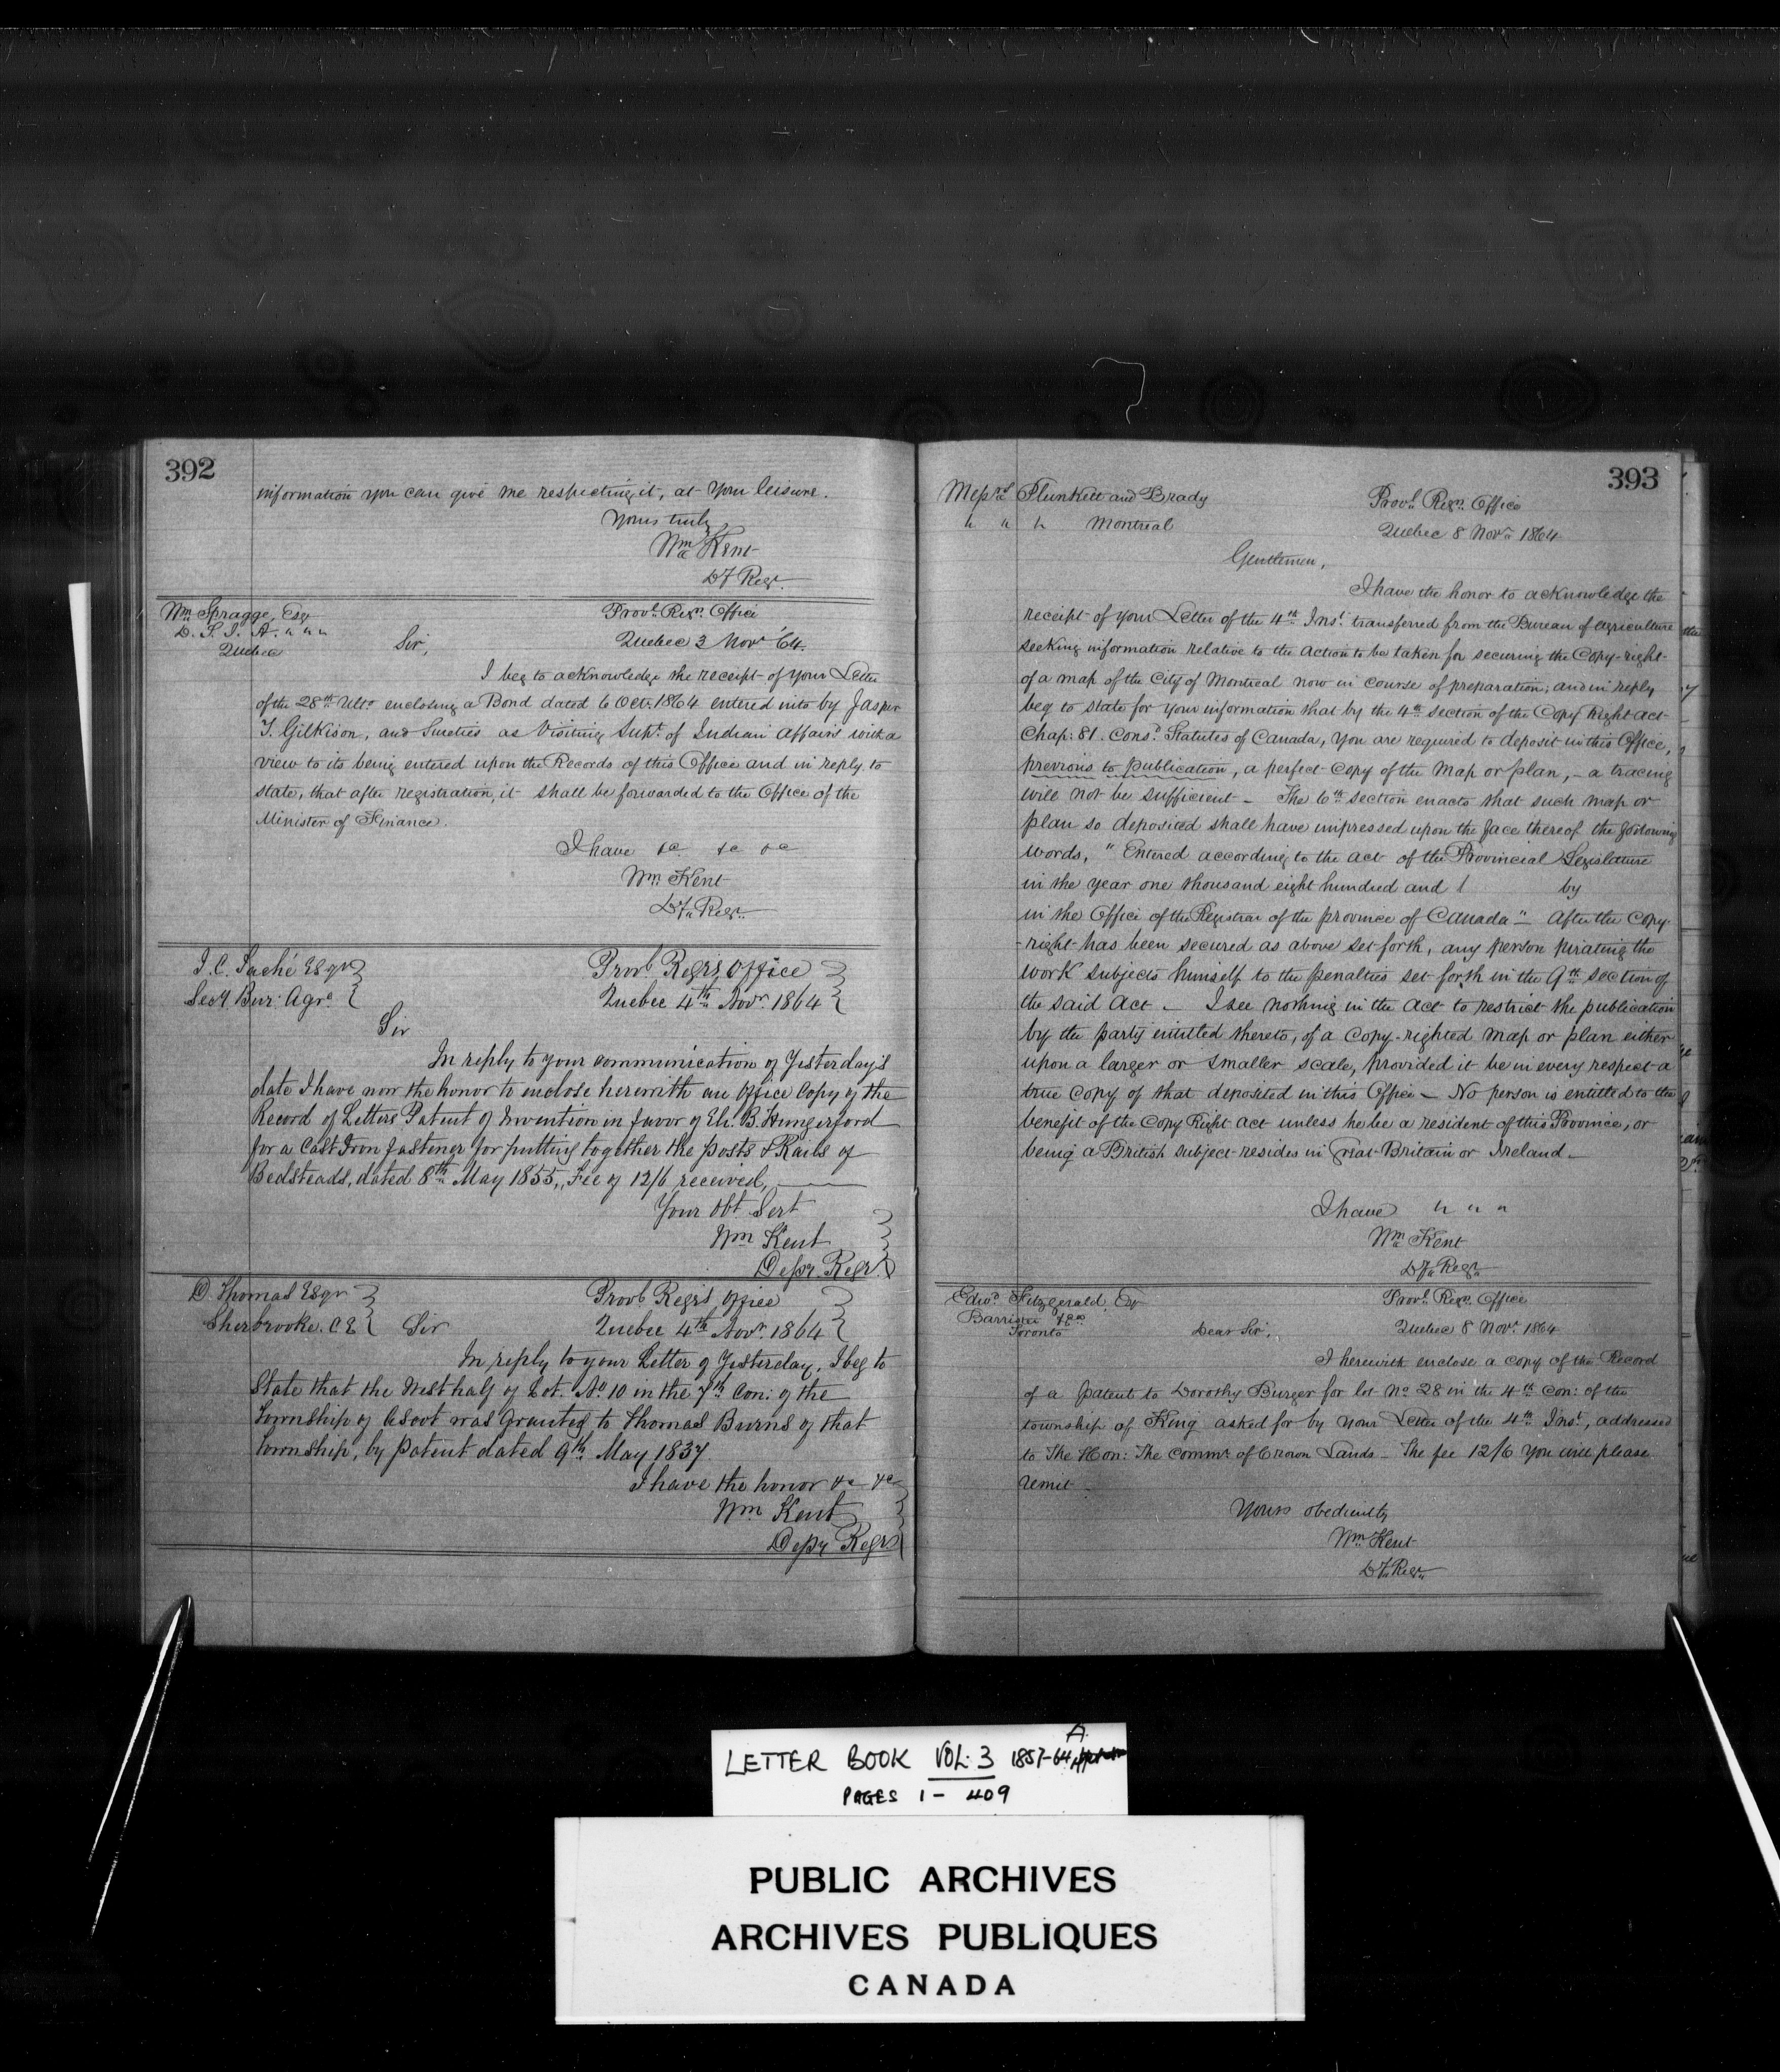 392
information you can give me respecting it, at your leisure.
Yours truly
Wm Kent
Dy Regr.
Wm Spragge, Esq
D. S. I. A. " " "
Quebec
Provl Regrs Office
Quebec 3 Novr '64.
Sir,
I beg to acknowledge the receipt of your Letter
of the 28th Ulto enclosing a Bond dated 6 Oct. 1864 entered into by Jasper
T. Gilkison, and Sureties as Visiting Supt. of Indian Affairs with a
view to its being entered upon the Records of this Office and in reply to
state, that after registration, it shall be forwarded to the Office of the
Minister of Finance.
I have &c &c &c
Wm Kent
Dy Regr.
J. C. Taché Esqr
Secy. Bur. Agre
Provl Regrs Office
Quebec 4th Novr. 1864
Sir
In reply to your communication of Yesterday's
date I have now the honor to enclose herewith an Office Copy of the
Record of Letters Patent of Invention in favor of Eh. B. Hungerford
for a Cast Iron fastener for putting together the posts & Rails of
Bedsteads, dated 8th May 1855, Fee of 12/6 received,
Your Obt Servt
Wm Kent
Depy Regr.
D. Thomas Esqr
Sherbrooke. C E
Provl Regrs Office
Quebec 4th Novr. 1864
Sir
In reply to your Letter of Yesterday, I beg to
State that the West half of Lot. No 10 in the 7th Con: of the
Township of Ascot was granted to Thomas Burns of that
Township, by patent dated 9th May 1837
I have the honor &c &c
Wm Kent
Depy Regr
393
Messrs Plunkett and Brady
" " " Montreal
Provl Regrs Office
Quebec 8 Novr 1864
Gentlemen,
I have the honor to acknowledge the
receipt of your Letter of the 4th Inst transferred from the Bureau of Agriculture
seeking information relative to the action to be taken for securing the Copy-right
of a map of the City of Montreal now in course of preparation; and in reply
beg to state for your information that by the 4th section of the Copy Right Act
Chap: 81. Consd Statutes of Canada, you are required to deposit in this Office,
previous to publication, a perfect copy of the map or plan, - a tracing
will not be sufficient - The 6th section enacts that such map or
plan so deposited shall have impressed upon the face thereof the following
words, "Entered according to the act of the Provincial Legislature
in the year one thousand eight hundred and by
in the Office of the Registrar of the province of Canada" - After the Copy-
-right has been secured as above set forth, any person pirating the
work subjects himself to the penalties set forth in the 9th section of
the said Act - I see nothing in the Act to restrict the publication
by the party entitled thereto, of a copy-righted map or plan either
upon a larger or smaller scale, provided it be in every respect a
true copy of that deposited in this Office - No person is entitled to the
benefit of the Copy Right Act unless he be a resident of this Province, or
being a British subject resides in Great Britain or Ireland -
I have " " "
Wm Kent
Dy Regr
Edwd Fitzgerald, Esq
Barrister &c
Toronto
Provl Regrs Office
Quebec 8 Novr. 1864
Dear Sir,
I herewith enclose a copy of the Record
of a patent to Dorothy Burger for lot No 28 in the 4th Con: of the
township of King asked for by your Letter of the 4th Inst, addressed
to The Hon: The Commr of Crown Lands - The fee 12/6 you will please
remit -
Yours obediently
Wm Kent
Dy Regr
LETTER BOOK VOL. 3 1857-64 A.
PAGES 1 - 409
PUBLIC ARCHIVES
ARCHIVES PUBLIQUES
CANADA